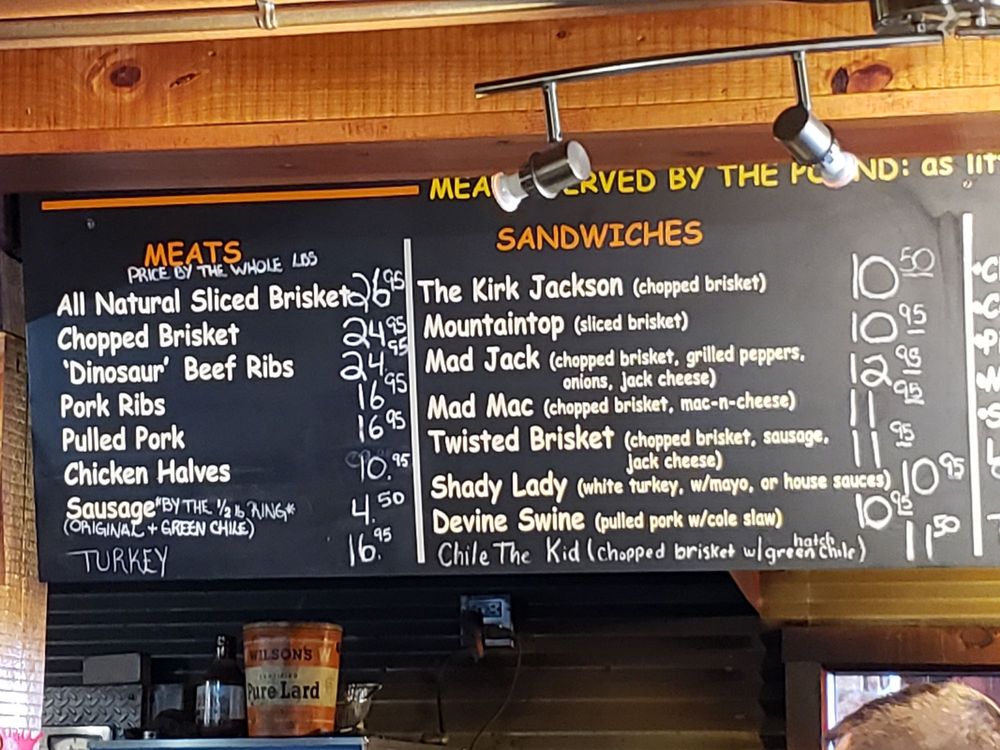 MEA ERVED BY THE P ND: as lit
MEATS
PRICE BY THE WHOLE LBS
All Natural Sliced Brisket 26 95
Chopped Brisket 24 95
'Dinosaur' Beef Ribs 24. 95
Pork Ribs 16 95
Pulled Pork 16 95
Chicken Halves 10. 95
Sausage *BY THE 1/2 lb RING* 4. 50
(ORIGINAL + GREEN CHILE)
TURKEY 16. 95
SANDWICHES
The Kirk Jackson (chopped brisket) 10 50
Mountaintop (sliced brisket) 10 95
Mad Jack (chopped brisket, grilled peppers, 12 95
onions, jack cheese)
Mad Mac (chopped brisket, mac-n-cheese) 11 95
Twisted Brisket (chopped brisket, sausage, 11 95
jack cheese)
Shady Lady (white turkey, w/mayo, or house sauces) 10 95
Devine Swine (pulled pork w/cole slaw) 10 95
hatch
Chile The Kid (chopped brisket w/green chile) 11 50
•C
•C
•P
•S
WILSON'S
CERTIFIED
Pure Lard